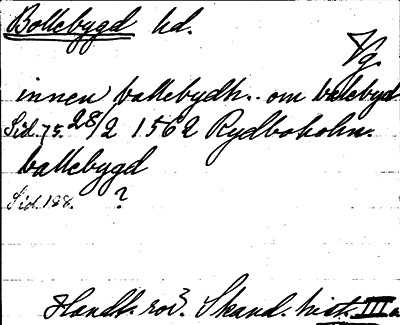 Bollebygd hd.
Vg.
innen ballebydh.. om balebyd
Sid. 75. 28/2 1562 Rydboholm.
ballebygd
Sid. 188. ?
Handl. rör. Skand. hist. III